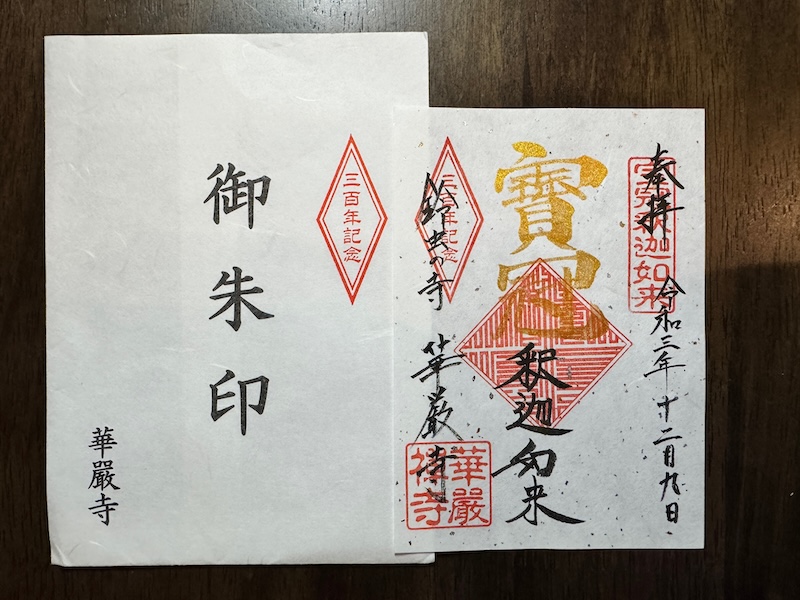 三百年記念
御朱印
華嚴寺
奉拝
釈迦如来
令和三年十二月九日
寶冠
釈迦如来
三百年記念
鈴虫の寺 華厳寺
華嚴
禅寺